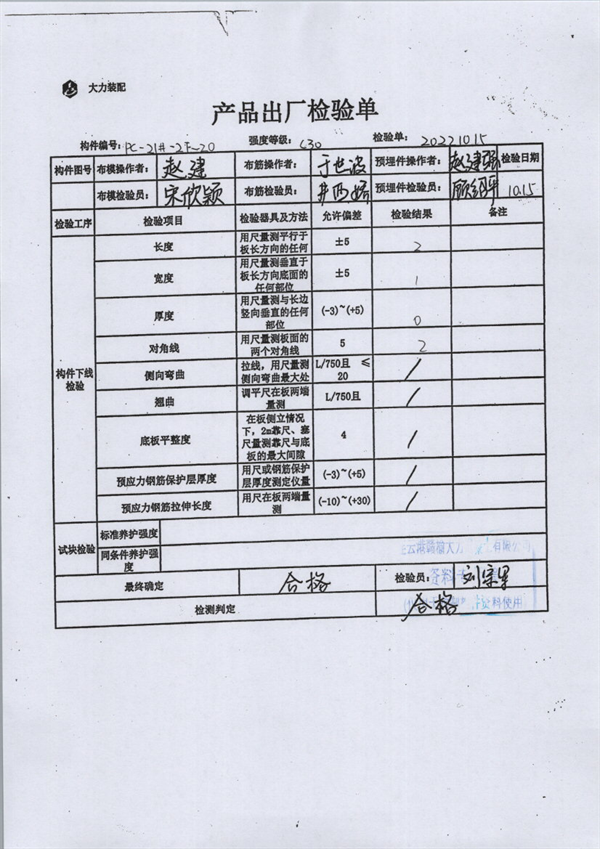 大力装配
产品出厂检验单
构件编号: PC-21#-2F-20 强度等级: C30 检验单: 20221015
构件图号 布模操作者: 赵建 布筋操作者: 于世波 预埋件操作者: 赵建强 检验日期
布模检验员: 宋欣颖 布筋检验员: 预埋件检验员: 1015
检验工序 检验项目 检验器具及方法 允许偏差 检验结果 备注
构件下线检验
长度 用尺量测平行于板长方向的任何 ±5 2
宽度 用尺量测垂直于板长方向底面的任何部位 ±5 1
厚度 用尺量测与长边竖向垂直的任何部位 (-3)~(+5) 0
对角线 用尺量测板面的两个对角线 5 2
侧向弯曲 拉线，用尺量测侧向弯曲最大处 L/750且 ≤20 /
翘曲 调平尺在板两端量测 L/750且 /
底板平整度 在板侧立情况下，2m靠尺、塞尺量测靠尺与底板的最大间隙 4 /
预应力钢筋保护层厚度 用尺或钢筋保护层厚度测定仪量 (-3)~(+5) /
预应力钢筋拉伸长度 用尺在板两端量测 (-10)~(+30) /
试块检验 标准养护强度
同条件养护强度
最终确定 合格 检验员:
检测判定 合格